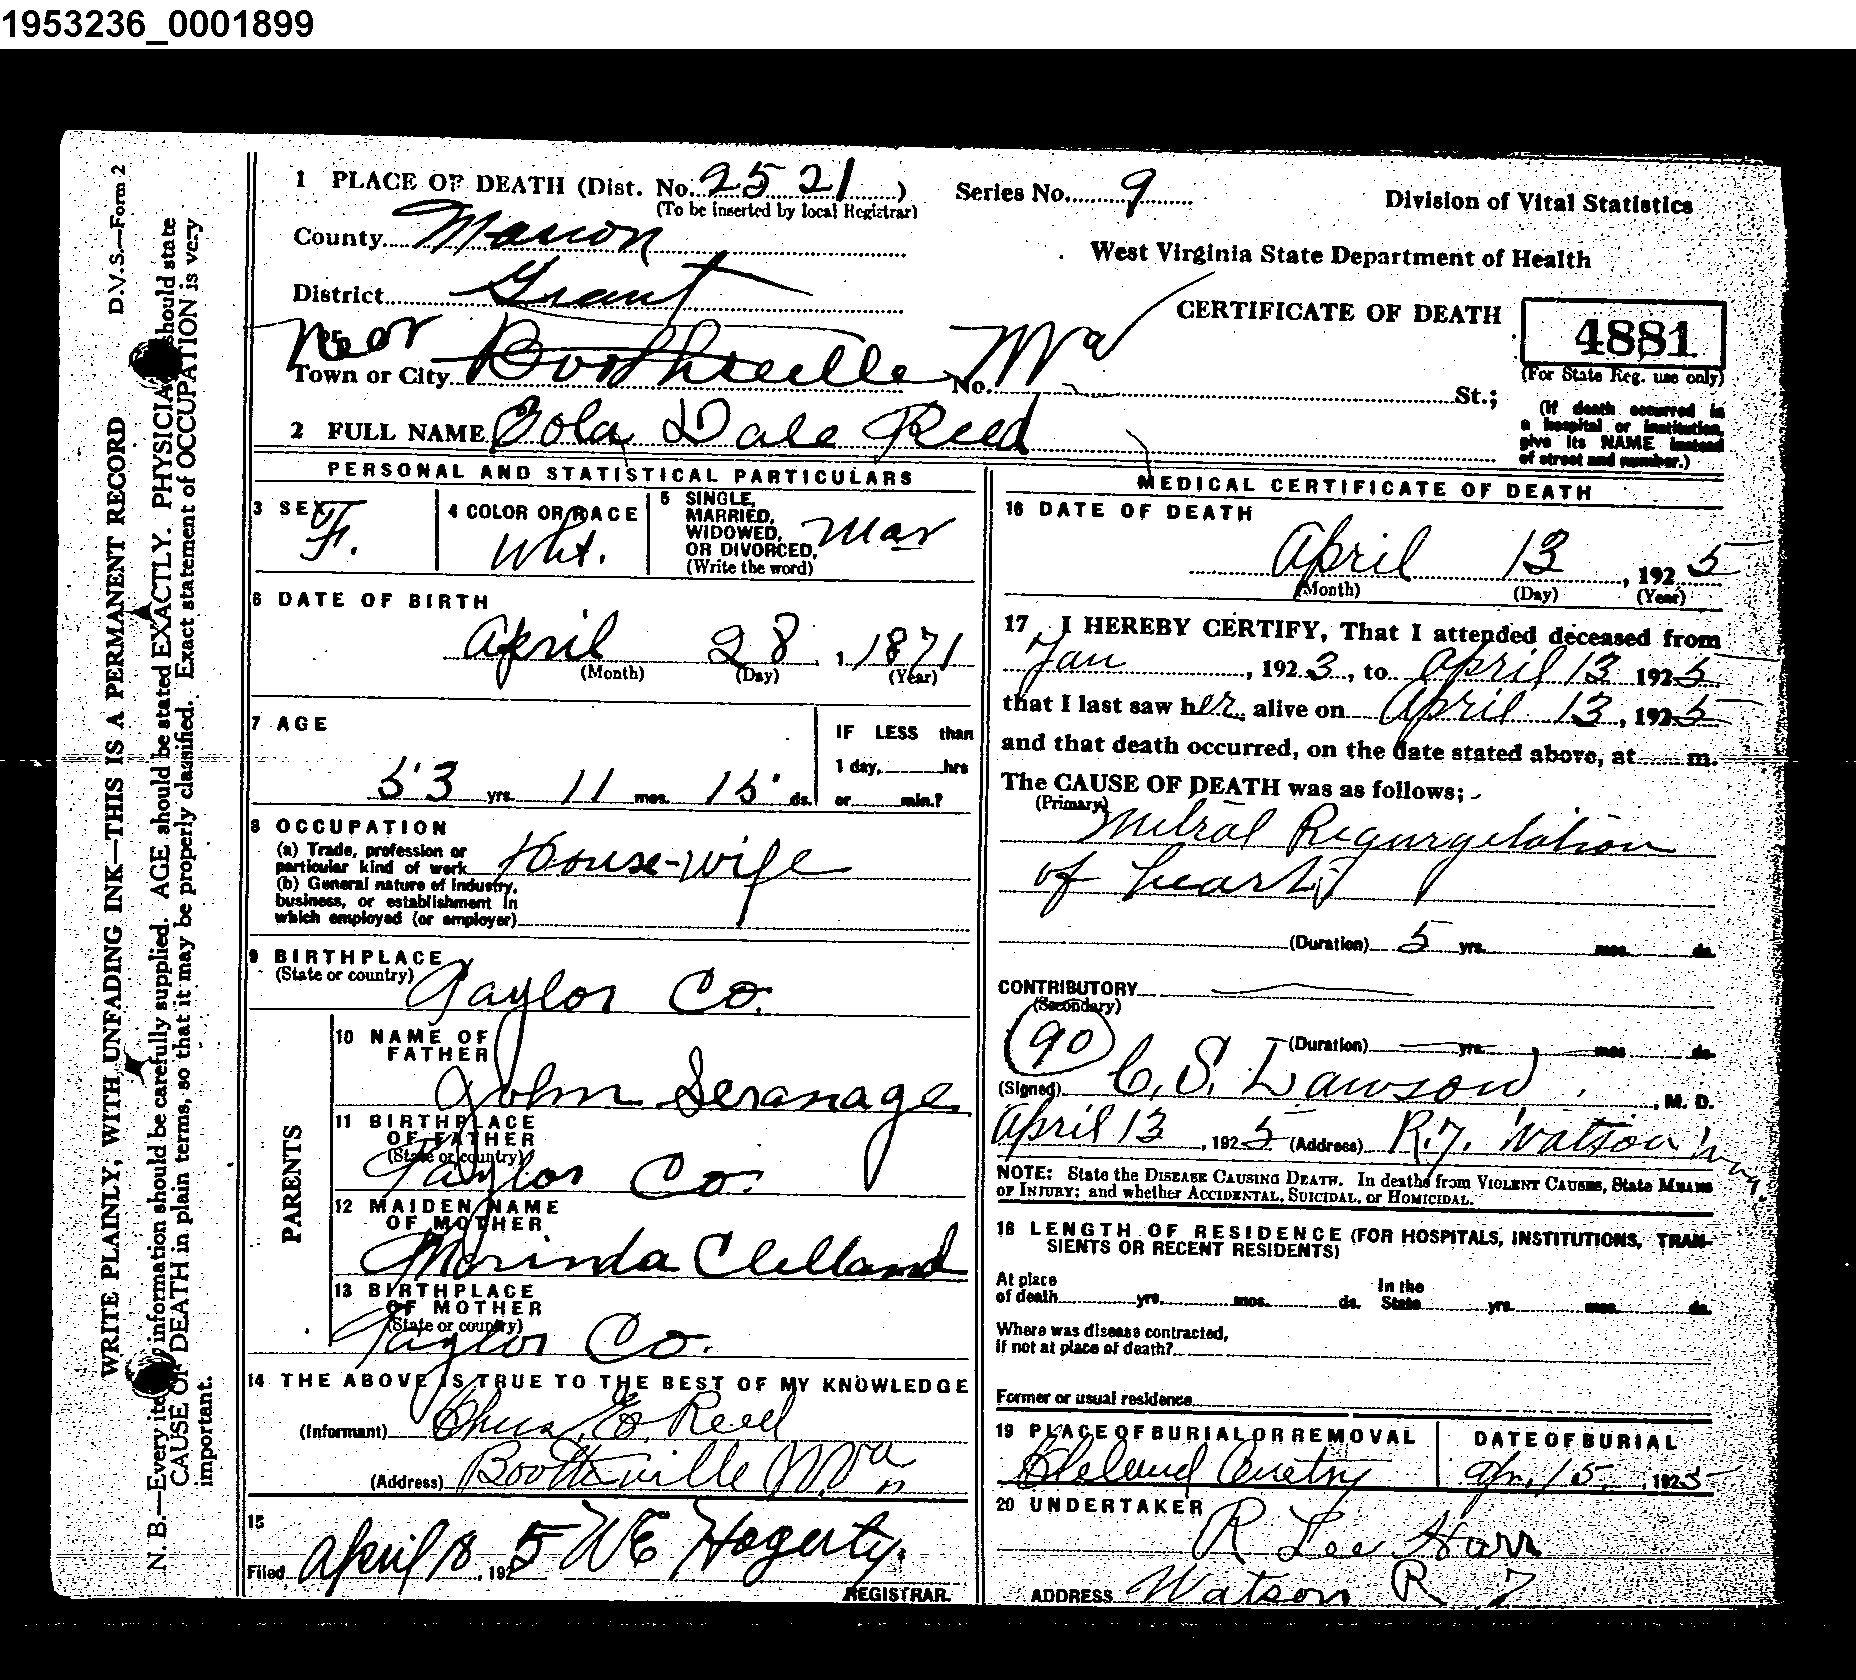 1953236_0001899
D.V.S.—Form 2
WRITE PLAINLY, WITH UNFADING INK—THIS IS A PERMANENT RECORD
N. B.—Every item of information should be carefully supplied. AGE should be stated EXACTLY. PHYSICIANS should state
CAUSE OF DEATH in plain terms, so that it may be properly classified. Exact statement of OCCUPATION is very
important.
1 PLACE OF DEATH (Dist. No. 2521) Series No. 9
(To be inserted by local Registrar)
Division of Vital Statistics
County Marion
West Virginia State Department of Health
District Grant
CERTIFICATE OF DEATH
4881
(For State Reg. use only)
near
Town or City Boothsville No. W Va St.;
(If death occurred in
a hospital or institution,
give its NAME instead
of street and number.)
2 FULL NAME Zola Dale Reed
PERSONAL AND STATISTICAL PARTICULARS
3 SEX F.
4 COLOR OR RACE Wht.
5 SINGLE,
MARRIED,
WIDOWED,
OR DIVORCED,
(Write the word)
Mar
6 DATE OF BIRTH
April 28, 1871
(Month) (Day) (Year)
7 AGE
53 yrs. 11 mos. 15 ds.
IF LESS than
1 day, hrs
or min.?
8 OCCUPATION
(a) Trade, profession or
particular kind of work House-wife
(b) General nature of industry,
business, or establishment in
which employed (or employer)
9 BIRTHPLACE
(State or country) Taylor Co.
PARENTS
10 NAME OF
FATHER
John Seranage
11 BIRTHPLACE
OF FATHER
(State or country)
Taylor Co.
12 MAIDEN NAME
OF MOTHER
Morinda Clelland
13 BIRTHPLACE
OF MOTHER
(State or country)
Taylor Co.
14 THE ABOVE IS TRUE TO THE BEST OF MY KNOWLEDGE
(Informant) Chas. E. Reed
(Address) Boothsville W. Va
15
Filed April 18, 1925 WE Hogerty.
REGISTRAR.
MEDICAL CERTIFICATE OF DEATH
16 DATE OF DEATH
April 13, 1925
(Month) (Day) (Year)
17 I HEREBY CERTIFY, That I attended deceased from
Jan, 1923, to April 13 1925
that I last saw her alive on April 13, 1925
and that death occurred, on the date stated above, at m.
The CAUSE OF DEATH was as follows;
(Primary)
Mitral Regurgetation
of heart
(Duration) 5 yrs. mos. ds.
CONTRIBUTORY
(Secondary)
90
(Duration) yrs. mos. ds.
(Signed) C. S. Lawson, M. D.
April 13, 1925 (Address) R.7. Watson
NOTE: State the DISEASE CAUSING DEATH. In deaths from VIOLENT CAUSES, State MEANS
or INJURY; and whether ACCIDENTAL, SUICIDAL, or HOMICIDAL.
18 LENGTH OF RESIDENCE (FOR HOSPITALS, INSTITUTIONS, TRAN-
SIENTS OR RECENT RESIDENTS)
At place
of death yrs. mos. ds.
In the
State yrs. mos. ds.
Where was disease contracted,
if not at place of death?
Former or usual residence
19 PLACE OF BURIAL OR REMOVAL
Cleland Cemetry
DATE OF BURIAL
Apr. 15, 1925
20 UNDERTAKER
R Lee Harr
ADDRESS Watson R 7